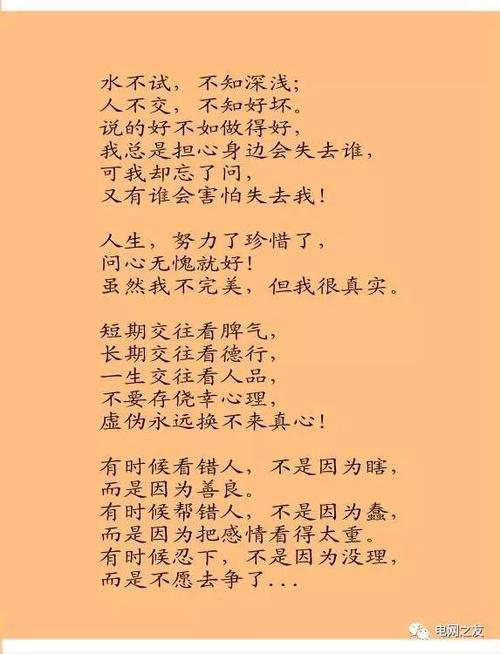 水不试，不知深浅；
人不交，不知好坏。
说的好不如做得好，
我总是担心身边会失去谁，
可我却忘了问，
又有谁会害怕失去我！
人生，努力了珍惜了，
问心无愧就好！
虽然我不完美，但我很真实。
短期交往看脾气，
长期交往看德行，
一生交往看人品，
不要存侥幸心理，
虚伪永远换不来真心！
有时候看错人，不是因为瞎，
而是因为善良。
有时候帮错人，不是因为蠢，
而是因为把感情看得太重。
有时候忍下，不是因为没理，
而是不愿去争了...
电网之友